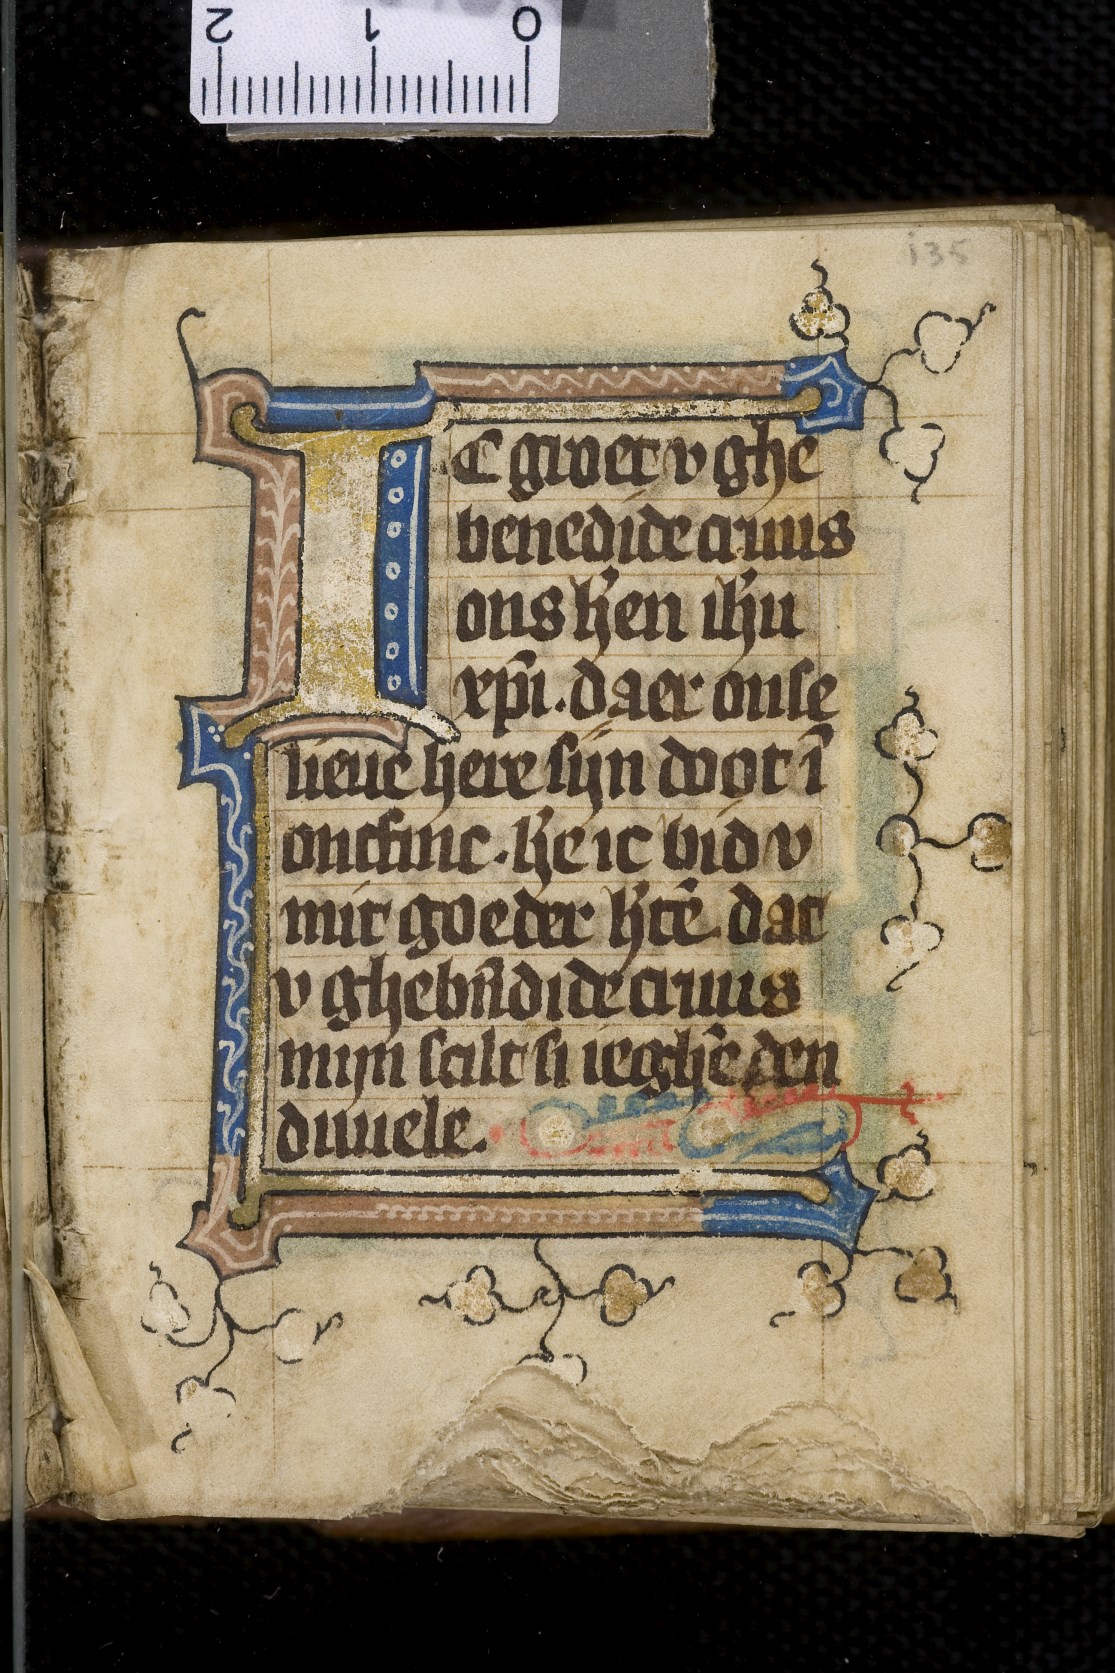 2 1 0
135
IC gruet v ghe
benedide cruus
ons h̄en ih̄u
xp̄i. daer onse
lieue here sijn doot ī
ontfinc. h̄e ic bid v
mit goeder h̄tē. dat
v ghebn̄dide cruus
mijn scilt si ieghē den
duuele.